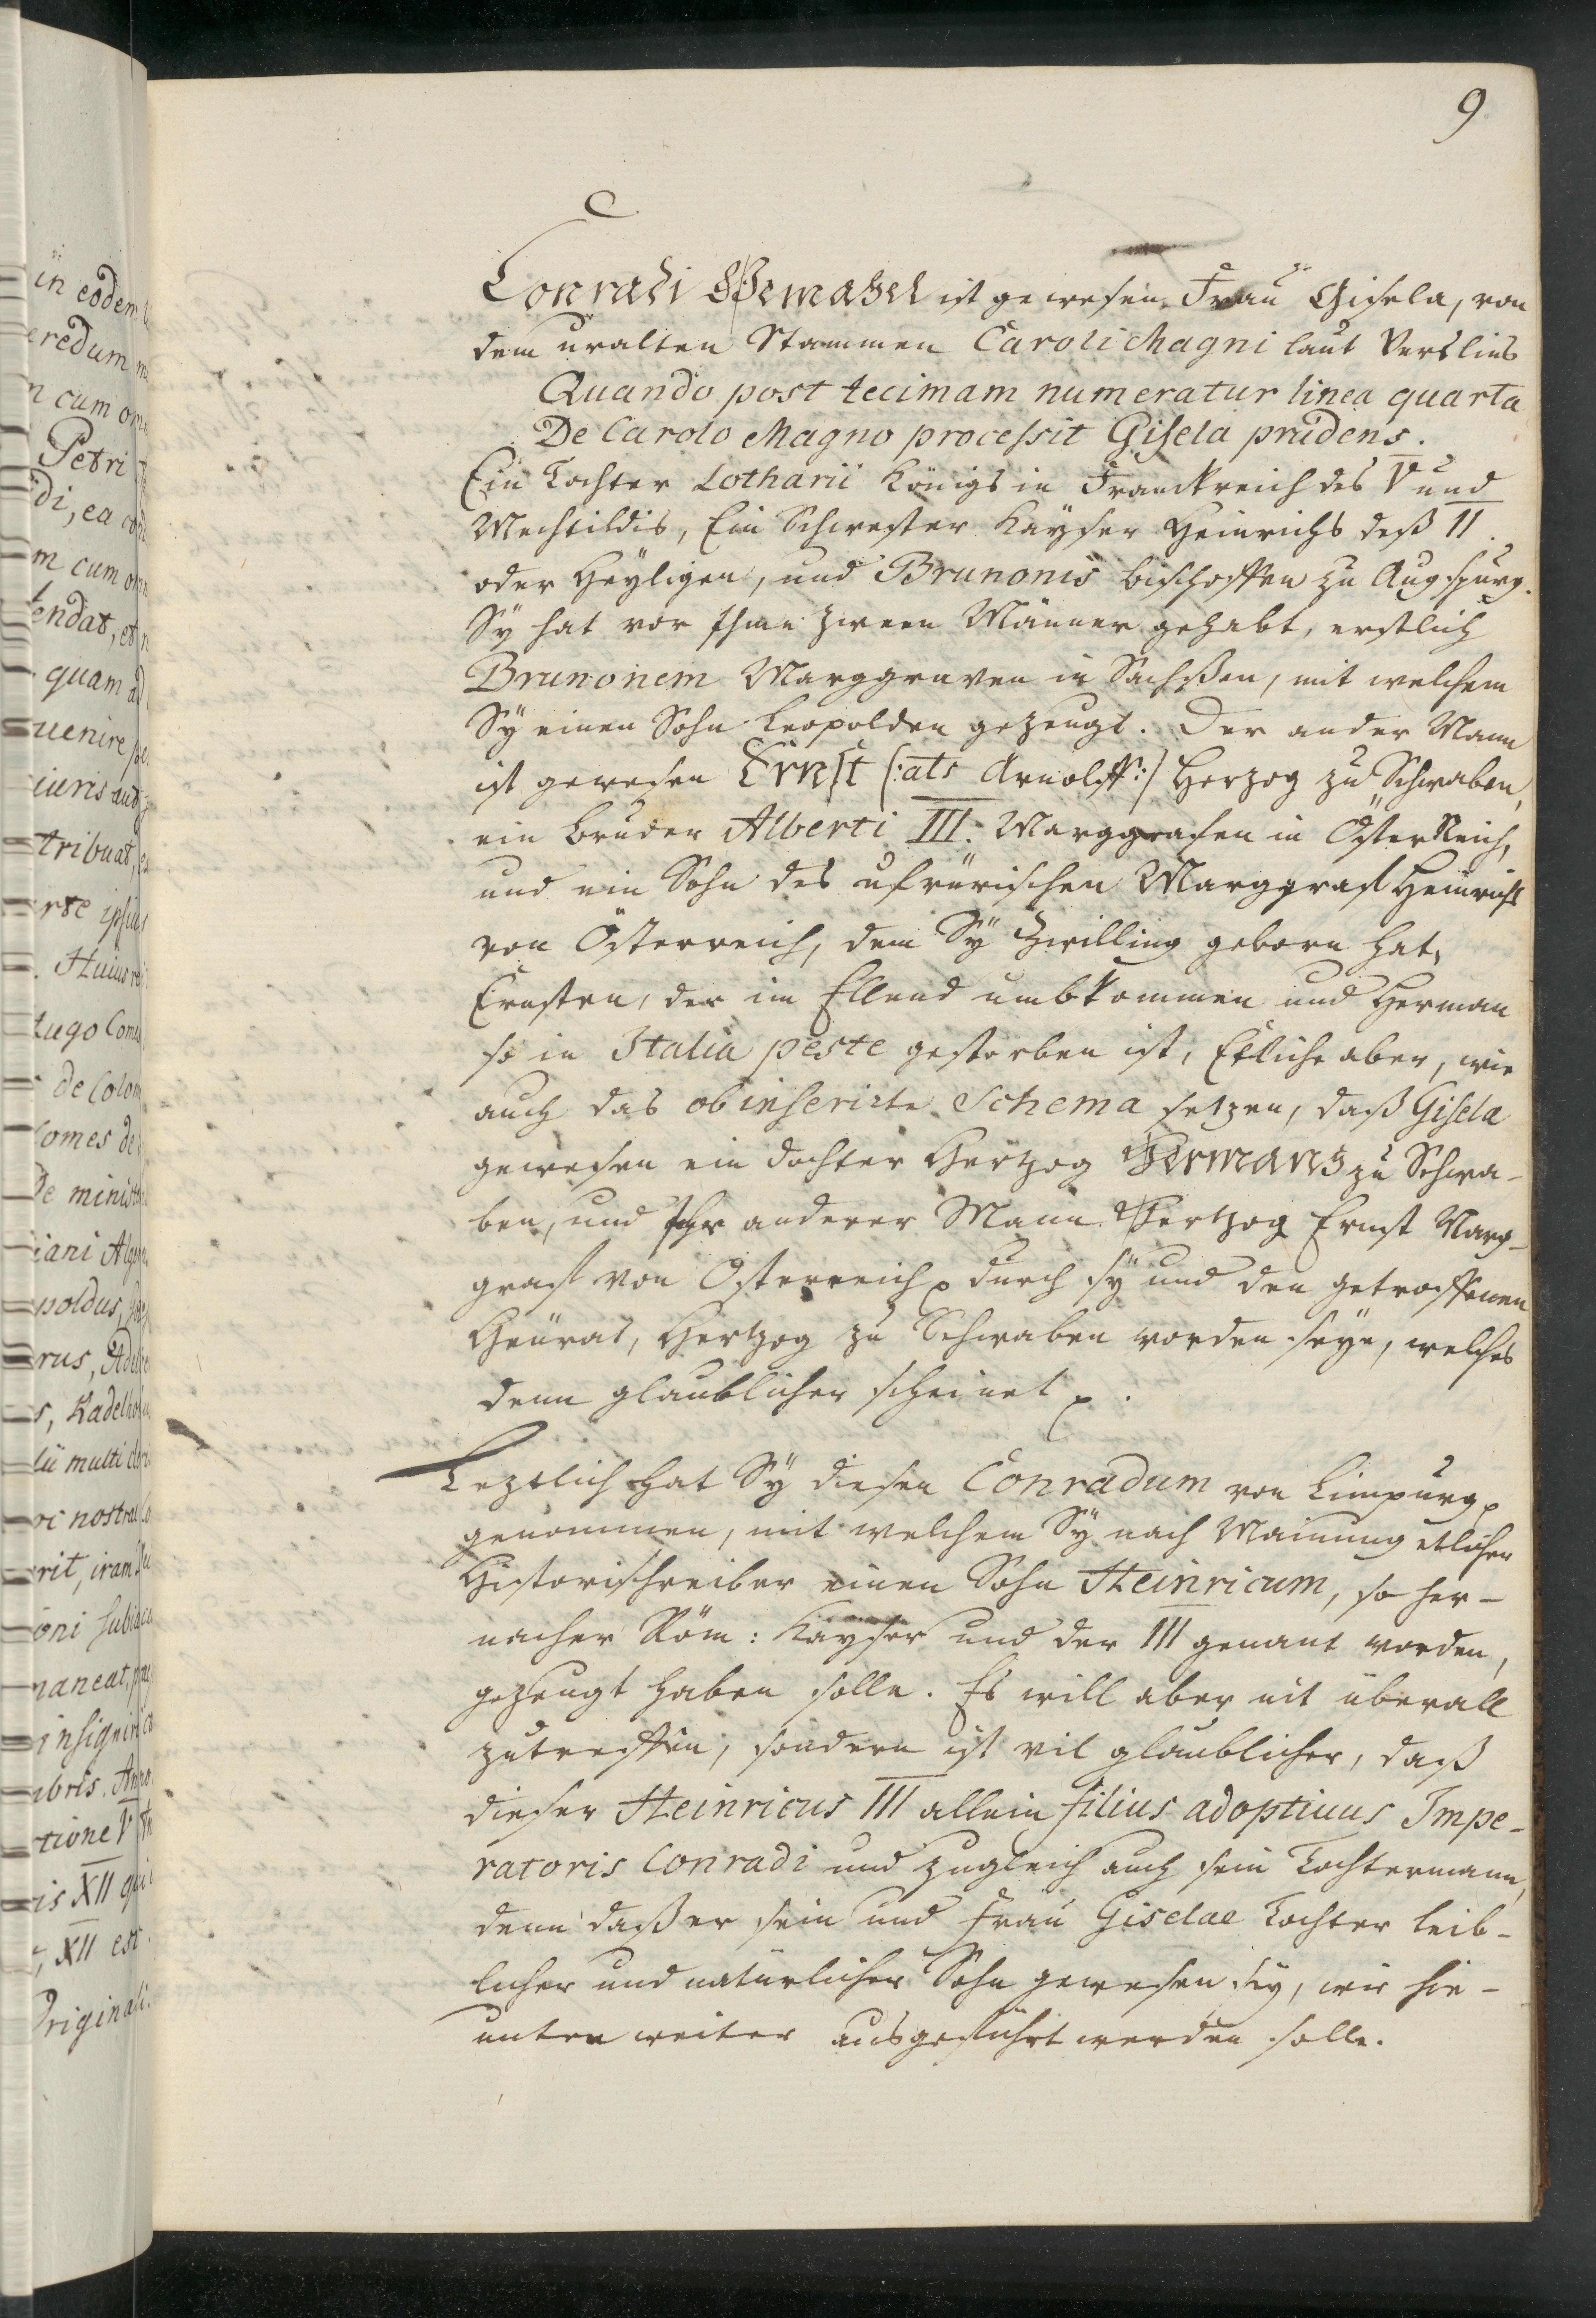 9.
C
Conradi Gemahel ist gewesen Frau Gisela, von
dem uralten Stammen Caroli Magni laut Verslins
Quando post tecimam numeratur linea quarta
De Carolo Magno processit Gisela prudens.
Ein Tochter Lotharii Königs in Franckreich des V und
Mechtildis, Ein Schwester Kaÿser Heinrichs deß II.
oder Heÿligen, und Brunonis bischoffen zu Augspurg.
Sÿ hat vor Ihme zween Männer gehabt, erstlich
Brunonem Marggraven in Sachßen, mit welchem
Sÿ einen Sohn Leopolden gezeugt. Der ander Mann
ist gewesen Ernst (: als Arnolff :) Herzog zu Schwaben,
ein bruder Alberti III. Marggrafen in ÖsterReich,
und ein Sohn des ufrürischen Marggraf Heinrichs
von Österreich, dem Sÿ Zwilling geborn hat,
Ernsten, der im Ellend umbkommen und Herman
so in Italia peste gestorben ist, Etliche aber, wie
auch das ob inserirte Schema setzen, daß Gisela
gewesen ein dochter Hertzog Hermans zu Schwa-
ben, und Ihr anderer Mann Hertzog Ernst Marg-
graf von Österreich durch sÿ und den getroffenen
Heürat, Hertzog zu Schwaben worden seÿe, welches
denn glaublicher scheinet.
Leztlich hat Sÿ diesen Conradum von Limpurg
genommen, mit welchem Sÿ nach Mainung etlicher
Historischreiber einen Sohn Heinricum, so her-
nacher Röm: Kayser und der III genant worden,
gezeugt haben solle. Es will aber nit überall
zutreffen, sondern ist vil glaublicher, daß
dieser Heinricus III allein filius adoptiuus Impe-
ratoris Conradi und zugleich auch sein Tochtermann,
denn daß er sein und Frau Giselae Tochter leib-
licher und natürlicher Sohn gewesen sey, wie hie-
unten weiter ausgeführt werden solle.